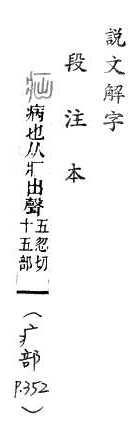 說文解字
段注本
病也从疒出聲
五忽切
十五部
（疒部 P.352）